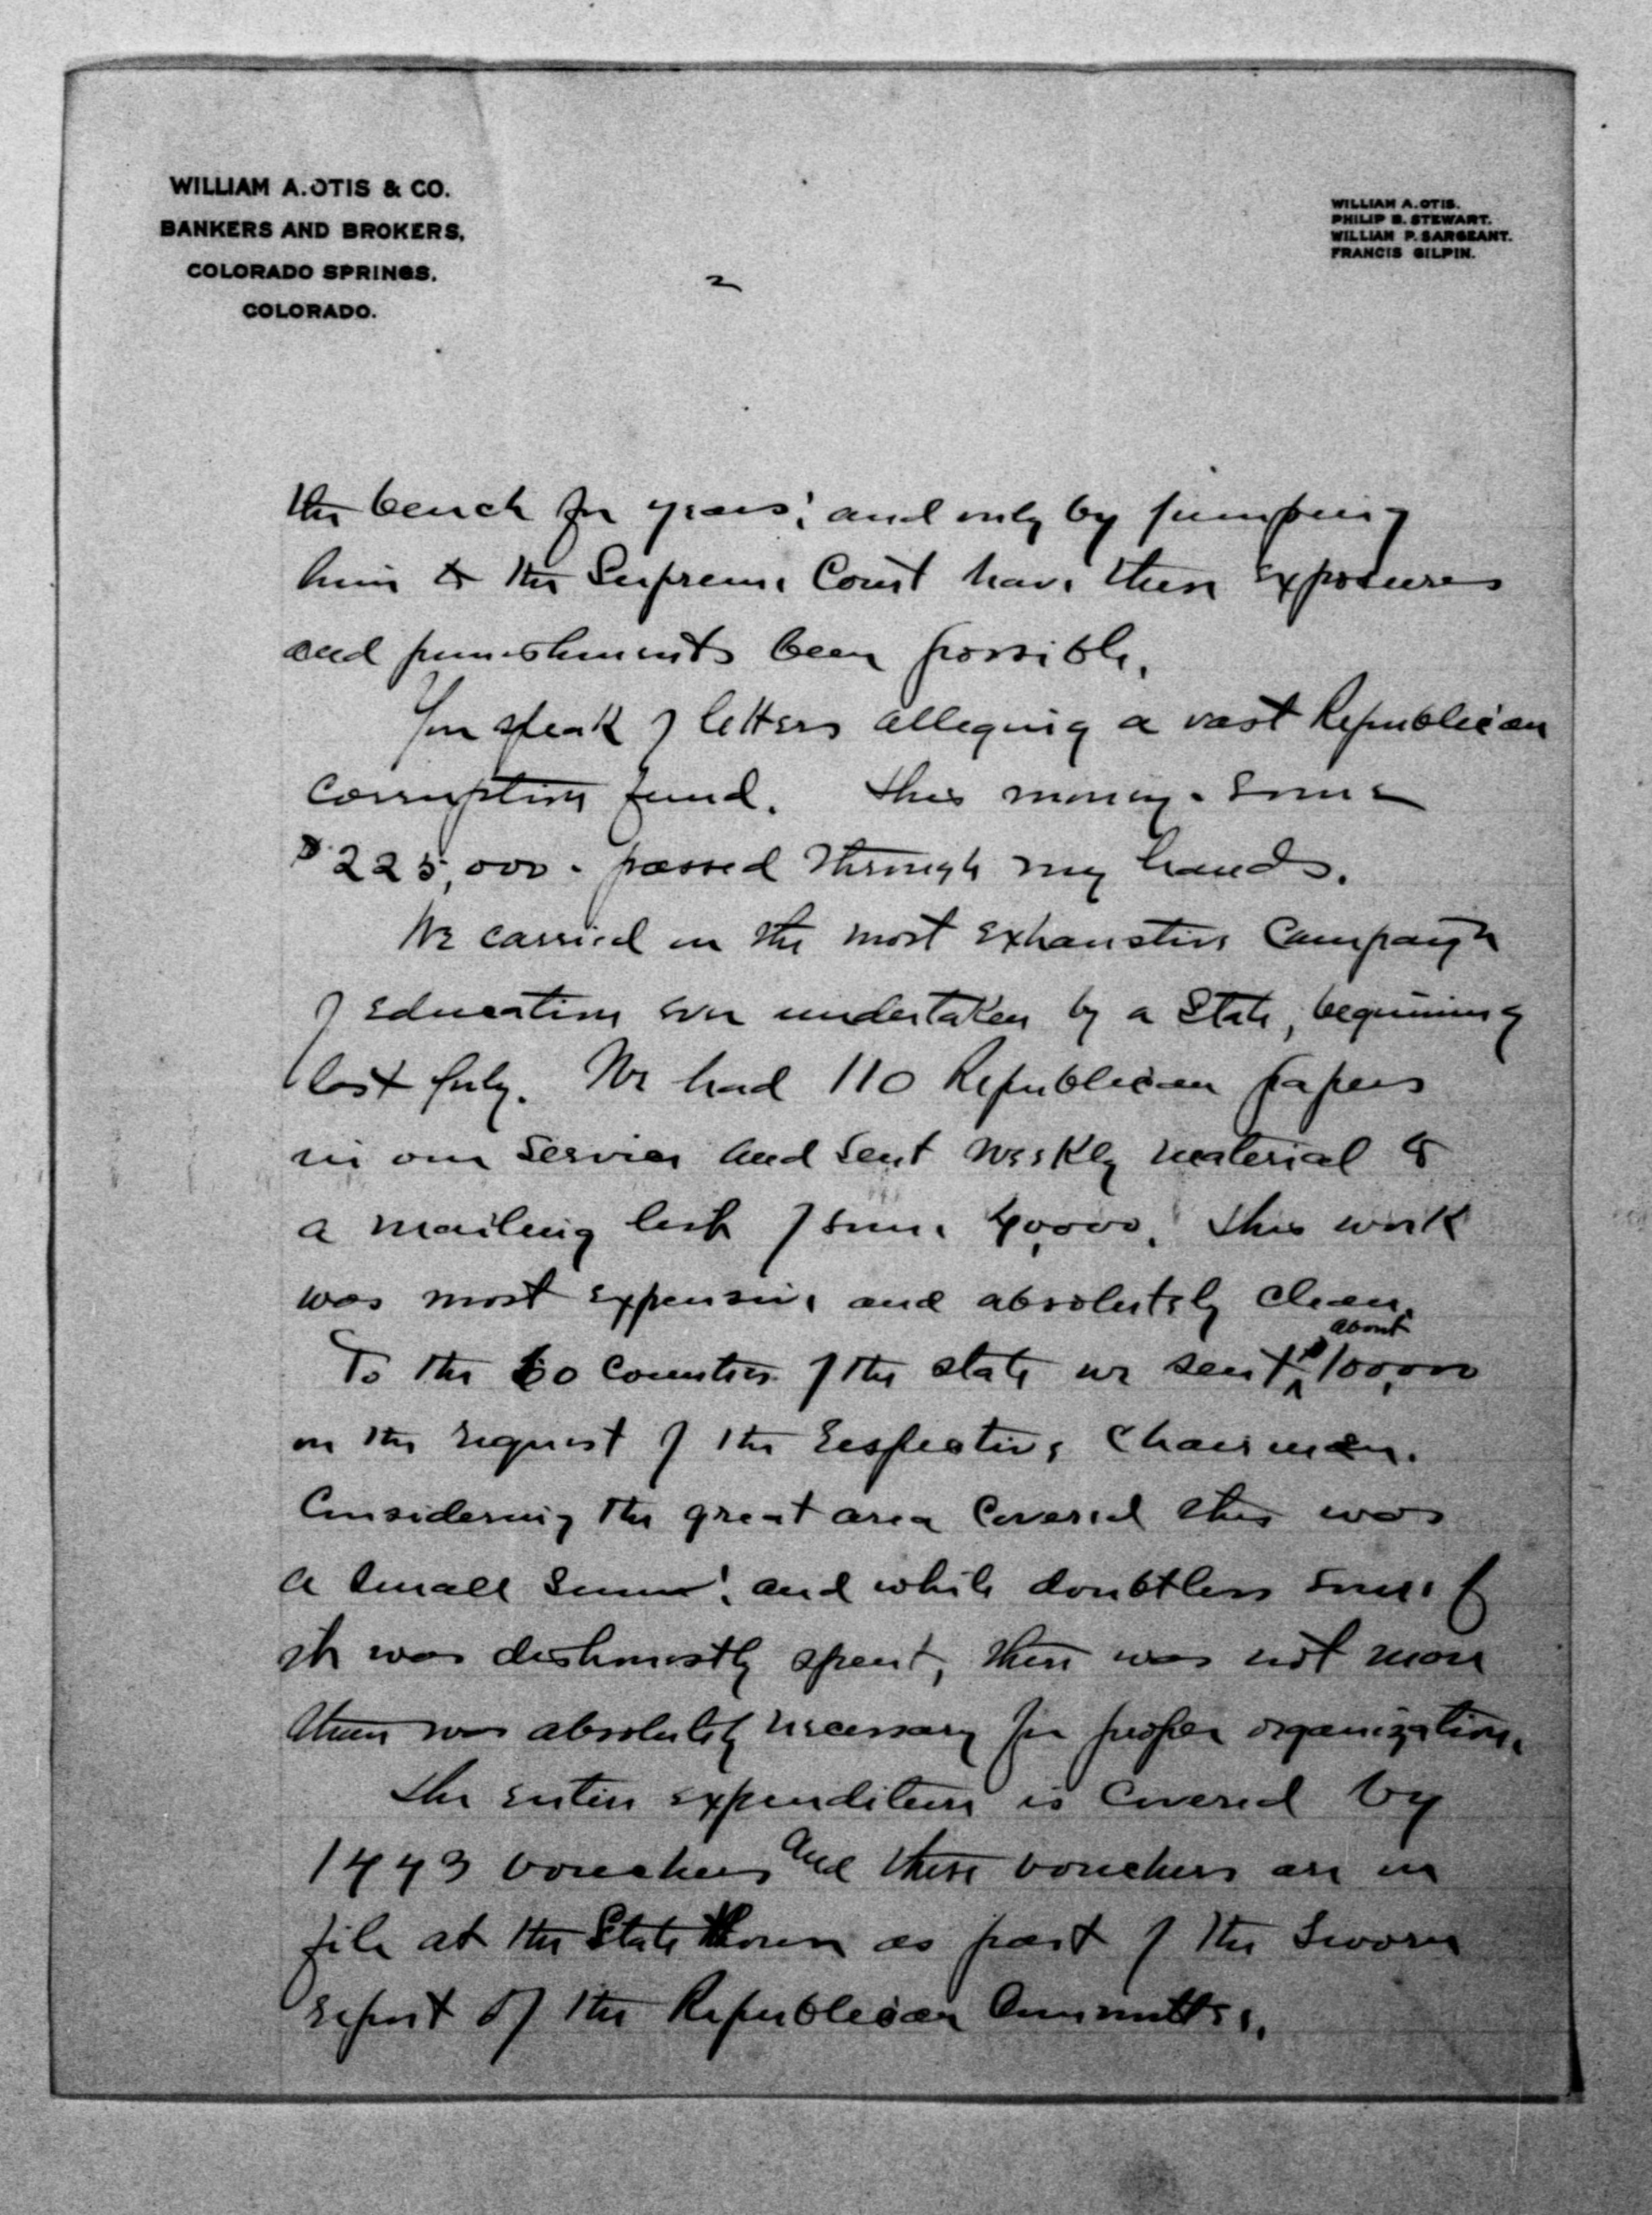 WILLIAM A. OTIS & CO.
BANKERS AND BROKERS,
COLORADO SPRINGS.
COLORADO.
WILLIAM A. OTIS.
PHILIP B. STEWART.
WILLIAM P. SARGEANT.
FRANCIS GILPIN.
2
the bench for years; and only by jumping
him to the Supreme Court have these exposures
and punishments been possible.
You speak of letters alleging a vast Republican
corruption fund. This money - some
$225,000 - passed through my hands.
We carried on the most exhaustive campaign
of education ever undertaken by a State, beginning
last July. We had 110 Republican papers
in our service and sent weekly material to
a mailing list of some 40,000. This work
was most expensive and absolutely clean.
about
To the 60 Counties of the state we sent $100,000
on the request of the respective Chairmen.
Considering the great area covered this was
a small sum; and while doubtless some of
it was dishonestly spent, there was not more
than was absolutely necessary for proper organization.
The entire expenditure is covered by
1443 vouchers and these vouchers are on
file at the State House as part of the sworn
report of the Republican Committee.